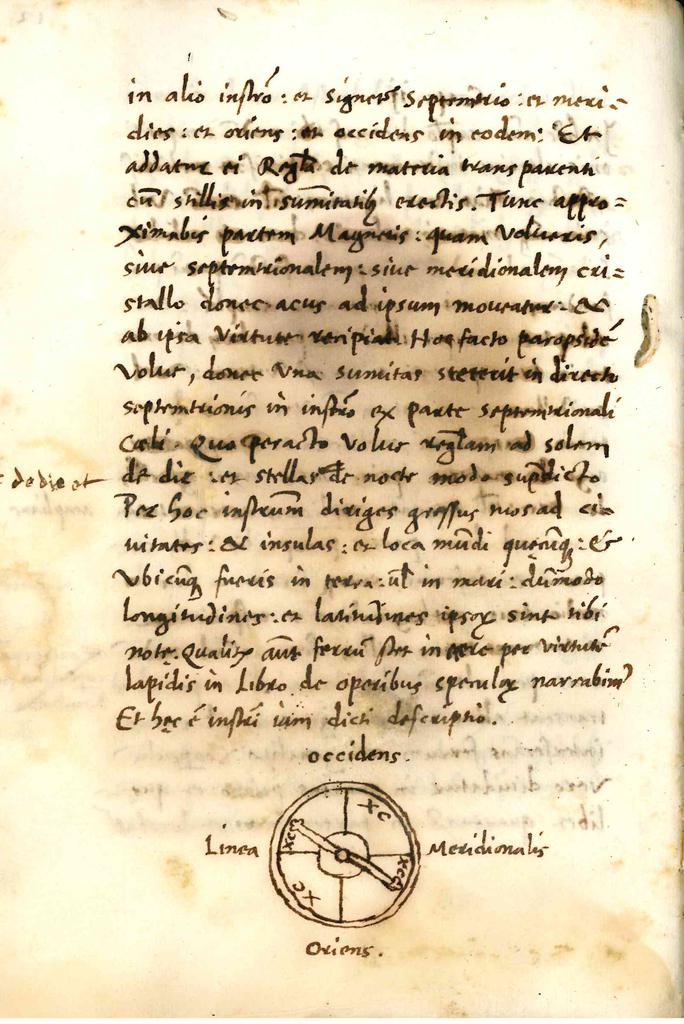 in alio instrō: et signet Septemtrio: et meri-
dies: et oriens: et occidens in eodem: Et
addatur ei Regła de materia transparenti
cū stillis in summitatibꝫ erectis. Tunc appro-
ximabis partem Magnetis: quam volueris,
sive septemtrionalem: sive meridionalem cri-
stallo donec acus ad ipsum moveatur. &
ab ipsa virtute recipiat. Hoc facto paropsidē
volve, donec una sumitas steterit in directo
septemtrionis in instrō ex parte septemtrionali
Cæli. Quo peracto volve regłam ad solem
de die: et stellas de nocte modo supdicto
dedie et
Per hoc instrum̄ diriges gressus tuos ad ci-
vitates: & insulas: et loca mūdi quęcūqꝫ: &
Ubicūqꝫ fueris in terra: uł in mari: dūmodo
longitudines: et latitudines ipsoꝝ sint tibi
notę. Qualitꝫ aūt ferrū stet in aere per virtutē
lapidis in Libro de operibus speculoꝝ narrabimꝰ
Et hęc ē instrī iam dicti descriptio.
occidens.
XC
XC
Linea Meridionalis
XC
XC
Oriens.